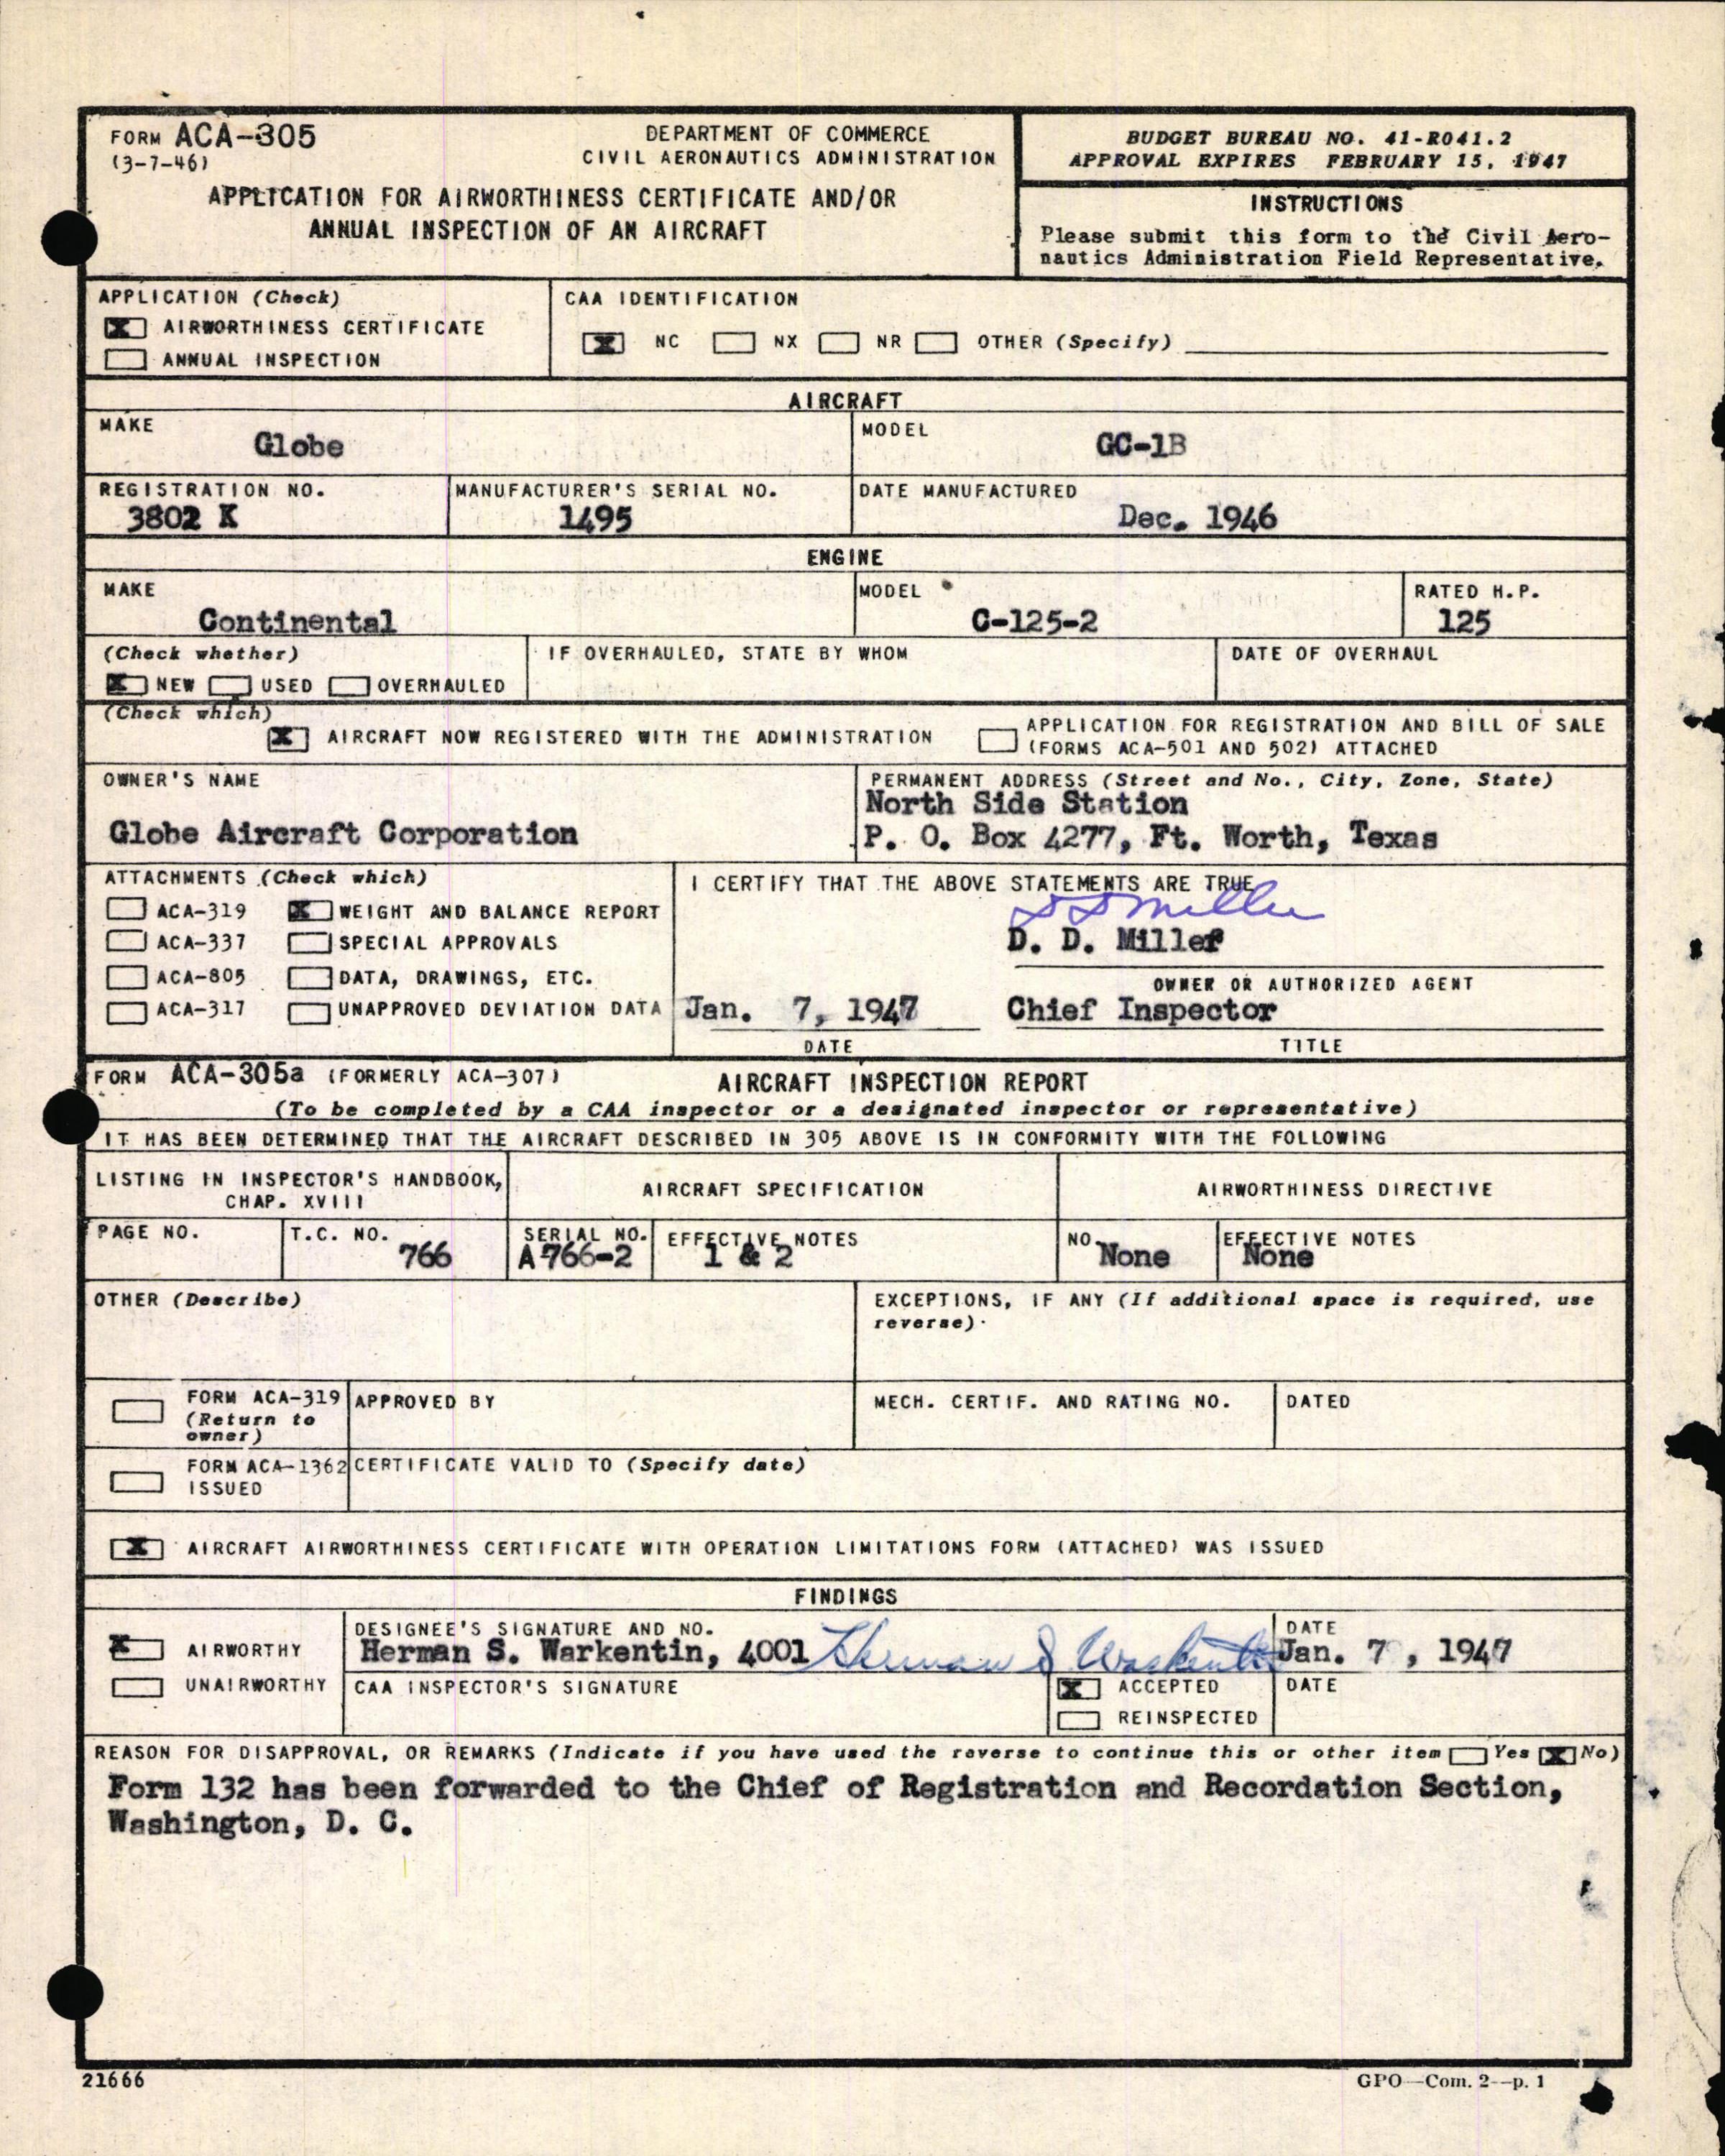 FORM ACA-305
(3-7-46)
DEPARTMENT OF COMMERCE
CIVIL AERONAUTICS ADMINISTRATION
APPLICATION FOR AIRWORTHINESS CERTIFICATE AND/OR
ANNUAL INSPECTION OF AN AIRCRAFT
BUDGET BUREAU NO. 41-R041.2
APPROVAL EXPIRES FEBRUARY 15, 1947
INSTRUCTIONS
Please submit this form to the Civil Aero-
nautics Administration Field Representative.
APPLICATION (Check)
X AIRWORTHINESS CERTIFICATE
ANNUAL INSPECTION
CAA IDENTIFICATION
X NC NX NR OTHER (Specify)
AIRCRAFT
MAKE
Globe
MODEL
GC-1B
REGISTRATION NO.
3802 K
MANUFACTURER'S SERIAL NO.
1495
DATE MANUFACTURED
Dec. 1946
ENGINE
MAKE
Continental
MODEL
C-125-2
RATED H.P.
125
(Check whether)
X NEW USED OVERHAULED
IF OVERHAULED, STATE BY WHOM
DATE OF OVERHAUL
(Check which)
X AIRCRAFT NOW REGISTERED WITH THE ADMINISTRATION
APPLICATION FOR REGISTRATION AND BILL OF SALE
(FORMS ACA-501 AND 502) ATTACHED
OWNER'S NAME
Globe Aircraft Corporation
PERMANENT ADDRESS (Street and No., City, Zone, State)
North Side Station
P. O. Box 4277, Ft. Worth, Texas
ATTACHMENTS (Check which)
ACA-319 X WEIGHT AND BALANCE REPORT
ACA-337 SPECIAL APPROVALS
ACA-805 DATA, DRAWINGS, ETC.
ACA-317 UNAPPROVED DEVIATION DATA
I CERTIFY THAT THE ABOVE STATEMENTS ARE TRUE
D D Miller
D. D. Miller
OWNER OR AUTHORIZED AGENT
Jan. 7, 1947 Chief Inspector
DATE TITLE
FORM ACA-305a (FORMERLY ACA-307)
AIRCRAFT INSPECTION REPORT
(To be completed by a CAA inspector or a designated inspector or representative)
IT HAS BEEN DETERMINED THAT THE AIRCRAFT DESCRIBED IN 305 ABOVE IS IN CONFORMITY WITH THE FOLLOWING
LISTING IN INSPECTOR'S HANDBOOK,
CHAP. XVIII
AIRCRAFT SPECIFICATION
AIRWORTHINESS DIRECTIVE
PAGE NO.
T.C. NO.
766
SERIAL NO.
A 766-2
EFFECTIVE NOTES
1 & 2
NO.
None
EFFECTIVE NOTES
None
OTHER (Describe)
EXCEPTIONS, IF ANY (If additional space is required, use
reverse).
FORM ACA-319
(Return to
owner)
APPROVED BY
MECH. CERTIF. AND RATING NO.
DATED
FORM ACA-1362
ISSUED
CERTIFICATE VALID TO (Specify date)
X AIRCRAFT AIRWORTHINESS CERTIFICATE WITH OPERATION LIMITATIONS FORM (ATTACHED) WAS ISSUED
FINDINGS
X AIRWORTHY
UNAIRWORTHY
DESIGNEE'S SIGNATURE AND NO.
Herman S. Warkentin, 4001 Herman S Warkentin
DATE
Jan. 7, 1947
CAA INSPECTOR'S SIGNATURE
X ACCEPTED
REINSPECTED
DATE
REASON FOR DISAPPROVAL, OR REMARKS (Indicate if you have used the reverse to continue this or other item Yes X No)
Form 132 has been forwarded to the Chief of Registration and Recordation Section,
Washington, D. C.
21666
GPO—Com. 2—p. 1